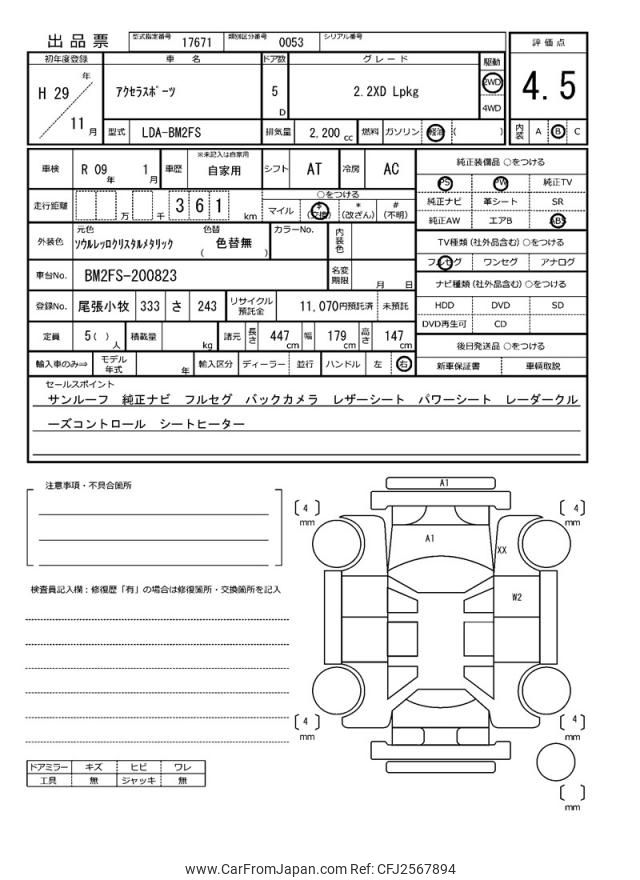 出品票 型式指定番号 17671 類別区分番号 0053 シリアル番号
初年度登録 車名 ドア数 グレード 駆動 評価点
H 29 年 11 月 アクセラスポーツ 5 D 2.2XD Lpkg 2WD 4WD 4.5
型式 LDA-BM2FS 排気量 2,200 cc 燃料 ガソリン 軽油 ( ) 内装 A B C
車検 R 09 年 1 月 車歴 ※未記入は自家用 自家用 シフト AT 冷房 AC 純正装備品 ○をつける
PS PW 純正TV
走行距離 万 千 3 6 1 km ○をつける マイル (交換) * (改ざん) # (不明) 純正ナビ 革シート SR
純正AW エアB ABS
外装色 元色 ソウルレッドクリスタルメタリック 色替 ( 色替無 ) カラーNo. 内装色 TV種類 (社外品含む) ○をつける
フルセグ ワンセグ アナログ
車台No. BM2FS-200823 名変期限 月 日 ナビ種類 (社外品含む) ○をつける
登録No. 尾張小牧 333 さ 243 リサイクル預託金 11,070円預託済 未預託 HDD DVD SD
DVD再生可 CD
定員 5 ( ) 人 積載量 kg 諸元 長さ 447 cm 幅 179 cm 高さ 147 cm 後日発送品 ○をつける
輸入車のみ⇒ モデル年式 年 輸入区分 ディーラー 並行 ハンドル 左 右 新車保証書 車輌取説
セールスポイント
サンルーフ 純正ナビ フルセグ バックカメラ レザーシート パワーシート レーダークル
ーズコントロール シートヒーター
注意事項・不具合箇所
検査員記入欄：修復歴「有」の場合は修復箇所・交換箇所を記入
A1
4 mm
4 mm
A1
XX
W2
4 mm
4 mm
mm
ドアミラー キズ ヒビ ワレ
工具 無 ジャッキ 無
www.CarFromJapan.com Ref: CFJ2567894